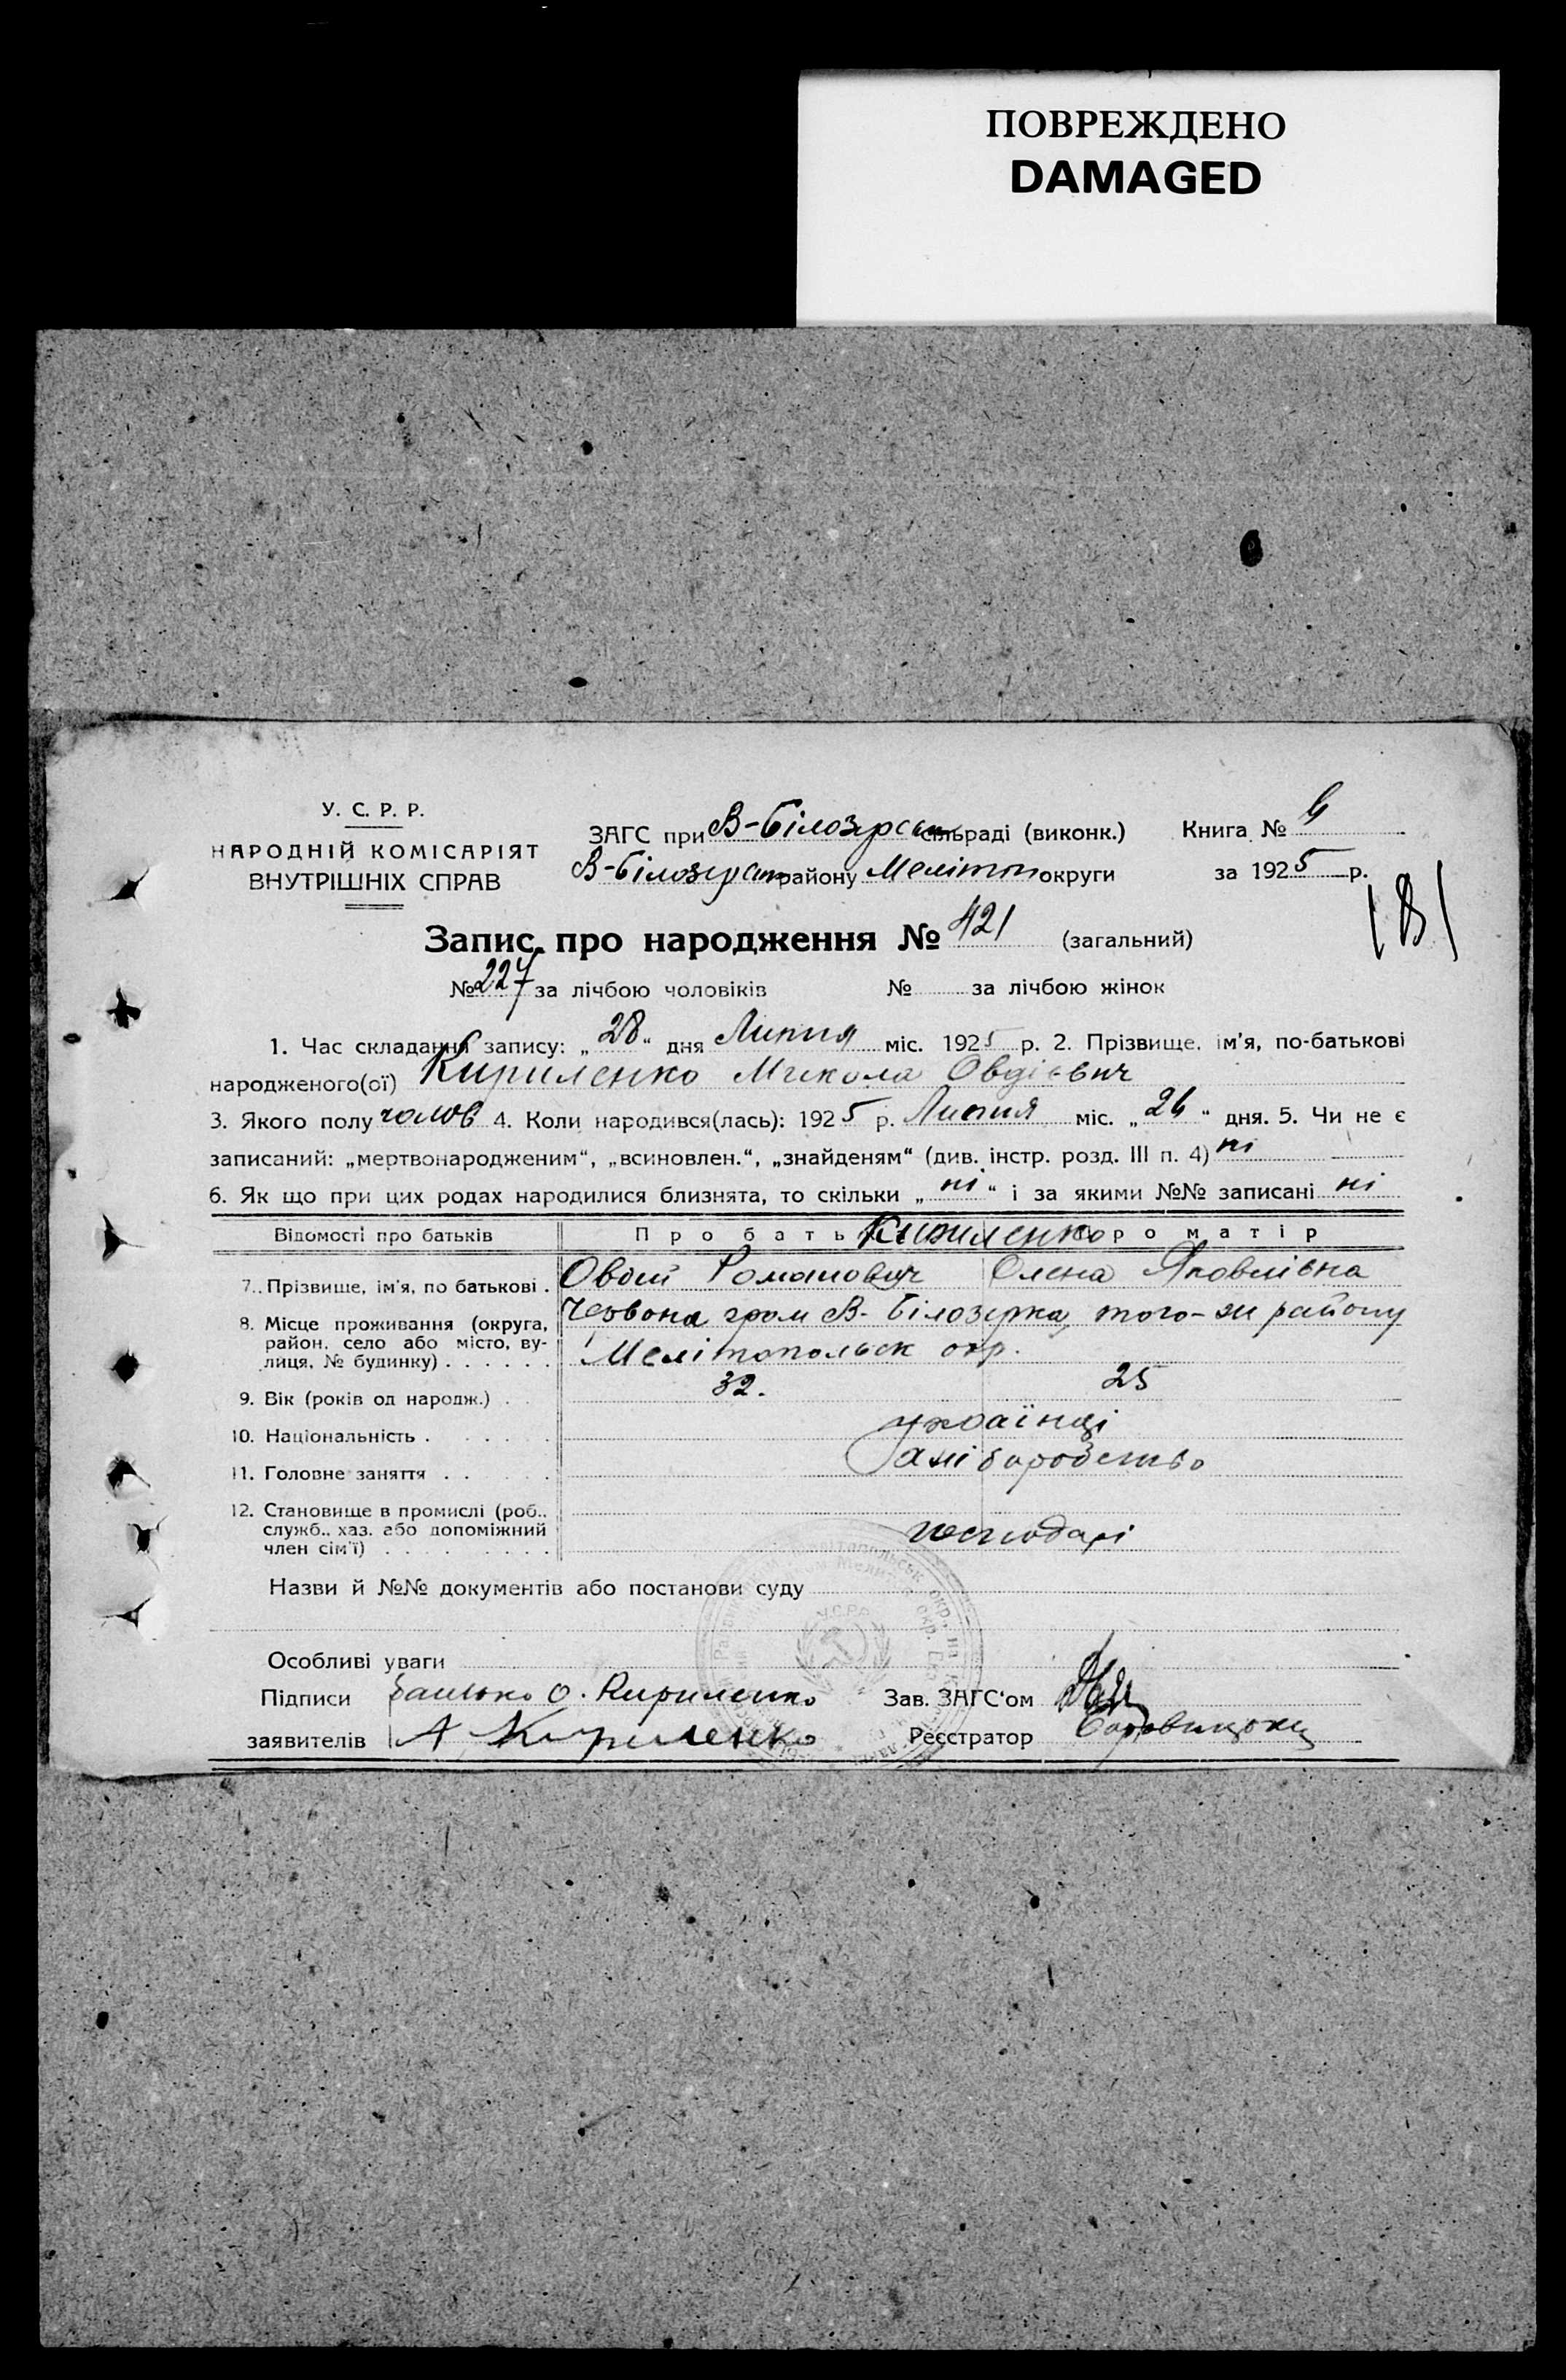 ПОВРЕЖДЕНО
DAMAGED
У. С. Р. Р.
НАРОДНІЙ КОМІСАРІЯТ
ВНУТРІШНІХ СПРАВ
ЗАГС при В-Білозерськ сільраді (виконк.) Книга №
В-Білозерськ району Мелітоп округи за 1925 р.
Запис про народження № 421 (загальний)
№ 227 за лічбою чоловіків № за лічбою жінок
1. Час складання запису: „28" дня Липня міс. 1925 р. 2. Прізвище, ім'я, по-батькові
народженого(ої) Кириленко Микола Овдієвич
3. Якого полу чолов 4. Коли народився(лась): 1925 р. Липня міс. „24" дня. 5. Чи не є
записаний: „мертвонародженим", „всиновлен.", „знайденям" (див. інстр. розд. III п. 4) ні
6. Як що при цих родах народилися близнята, то скільки „ні" і за якими №№ записані ні
Відомості про батьків Про бать Кириленко ро матір
7. Прізвище, ім'я, по батькові . Овдій Романович Олена Яковлівна
8. Місце проживання (округа, район, село або місто, вулиця, № будинку) . . . . . . Червона гром В-Білозерка, того-ж району
Мелітопольськ окр.
9. Вік (років од народж.) . . 32. 25
10. Національність . . . . . . українці
11. Головне заняття . . . . . Хліборобство
12. Становище в промислі (роб.. служб.. хаз. або допоміжний член сім'ї) . . . . . . . . господарі
Назви й №№ документів або постанови суду
У.С.Р.Р.
Особливі уваги
Підписи батько О. Кириленко Зав. ЗАГС'ом
заявителів А Кириленко Реєстратор